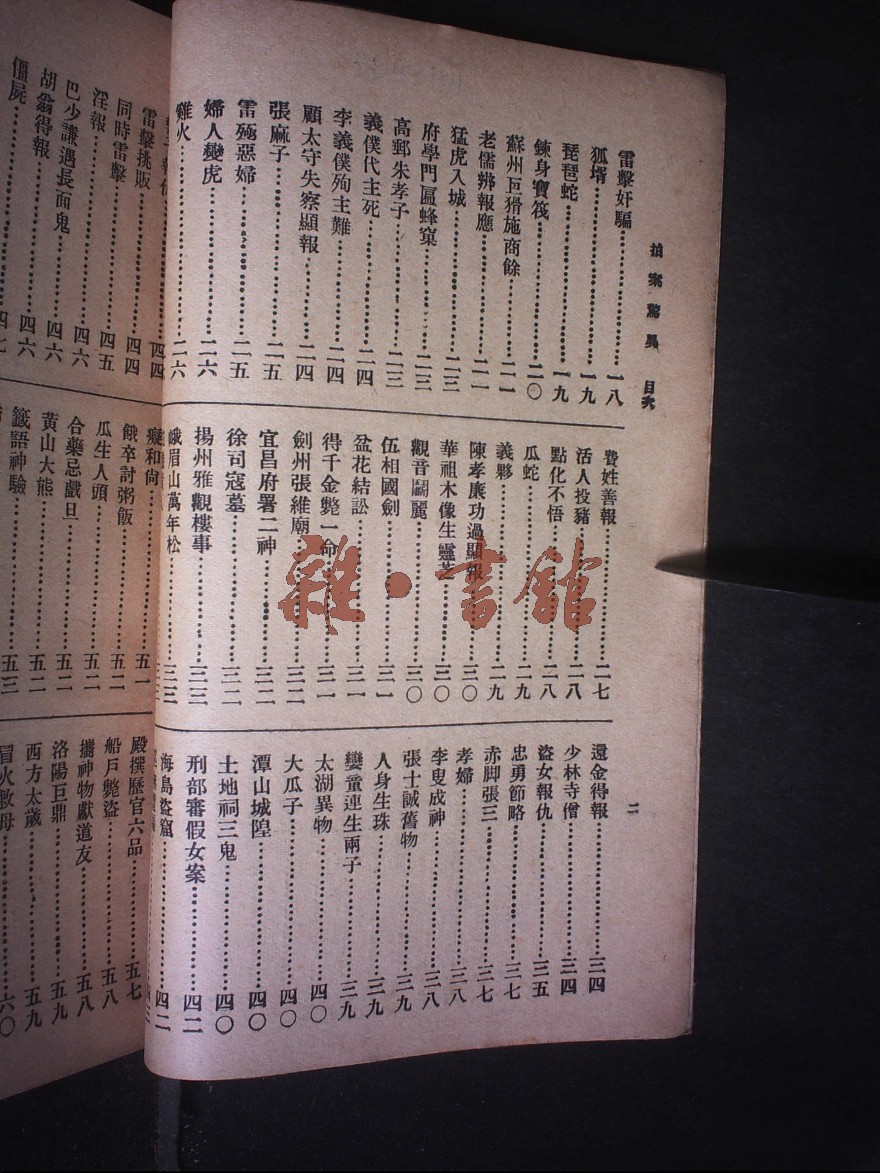 拍案驚異 目次
二
雷擊奸騙……一八
狐壻……一九
琵琶蛇……一九
鍊身寶筏……二〇
蘇州巨猾施商餘……二一
老儒辨報應……二一
猛虎入城……二三
府學門匾蜂窠……二三
高郵朱孝子……二三
義僕代主死……二四
李義僕殉主難……二四
顧太守失察顯報……二四
張麻子……二五
雷殛惡婦……二五
婦人變虎……二六
雞火……二六
費姓善報……二七
活人投豬……二八
點化不悟……二八
瓜蛇……二九
義夥……二九
陳孝廉功過顯報……三〇
華祖木像生靈芝……三〇
觀音鬭麗……三〇
伍相國劍……三一
盆花結訟……三一
得千金斃一命……三一
劍州張維廟……三二
宜昌府署二神……三二
徐司寇墓……三二
揚州雅觀樓事……三三
峨眉山萬年松……三三
還金得報……三四
少林寺僧……三四
盜女報仇……三五
忠勇節略……三七
赤脚張三……三七
孝婦……三八
李叟成神……三八
張士誠舊物……三九
人身生珠……三九
孌童連生兩子……三九
太湖異物……四〇
大瓜子……四〇
潭山城隍……四〇
土地祠三鬼……四〇
刑部審假女案……四二
海島盜窟……四二
四四
雷擊挑販……四四
同時雷擊……四五
淫報……四六
巴少謙遇長面鬼……四六
胡翁得報……四六
僵屍……四七
癡和尚……五一
餓卒討粥飯……五二
瓜生人頭……五二
合藥忌戲旦……五二
黃山大熊……五二
籤語神驗……五三
殿撰歷官六品……五七
船戶斃盜……五八
攜神物獻道友……五八
洛陽巨鼎……五九
西方太歲……五九
冒火救母……六〇
雜·書館